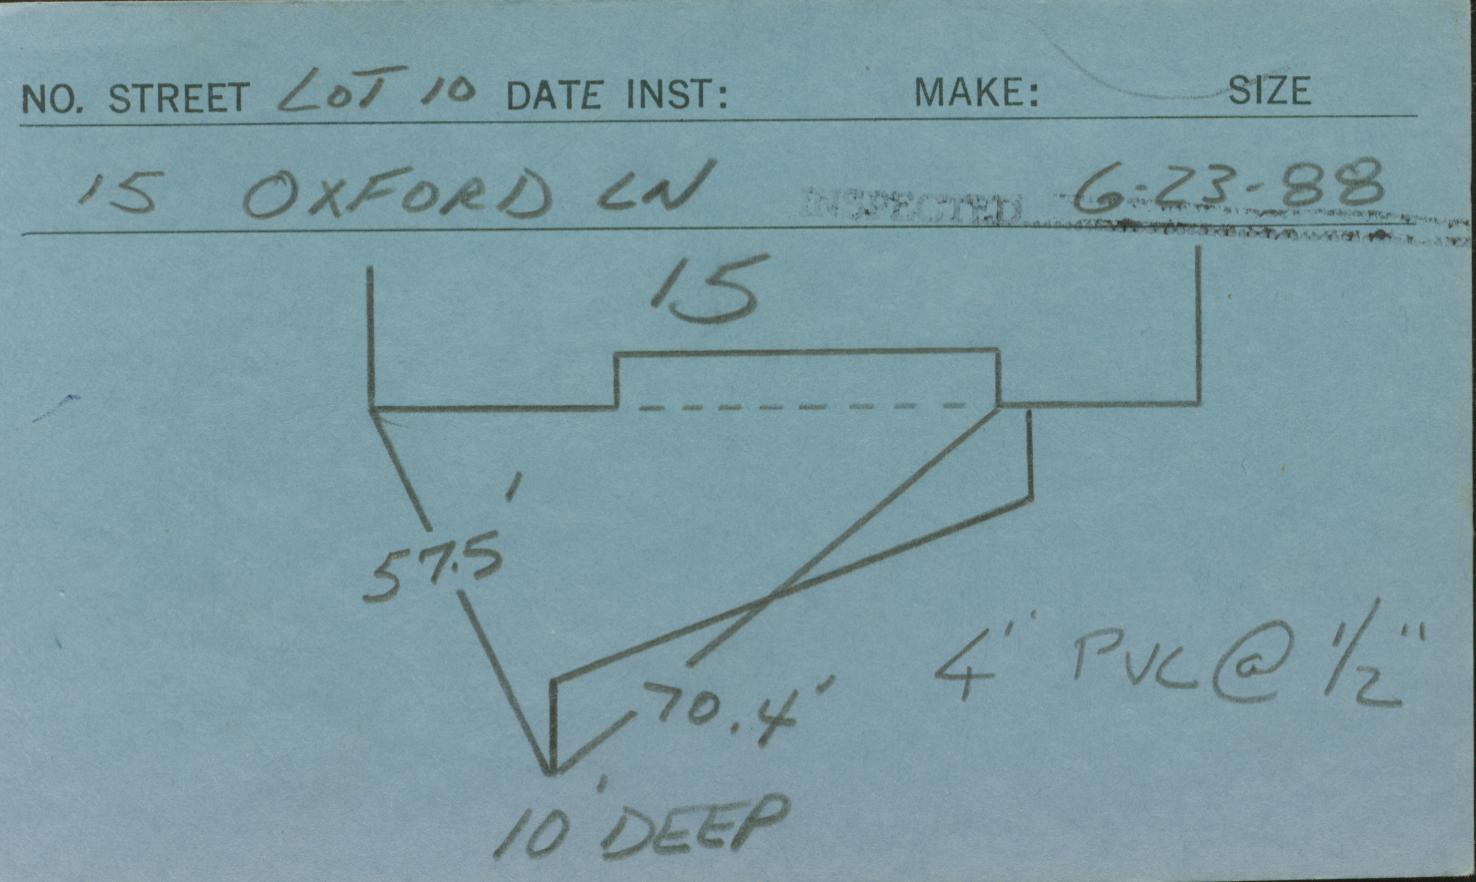 NO. STREET LOT 10 DATE INST: MAKE: SIZE
15 OXFORD LN INSPECTED 6-23-88
15
57.5'
70.4'
4" PVC @ 1/2"
10' DEEP